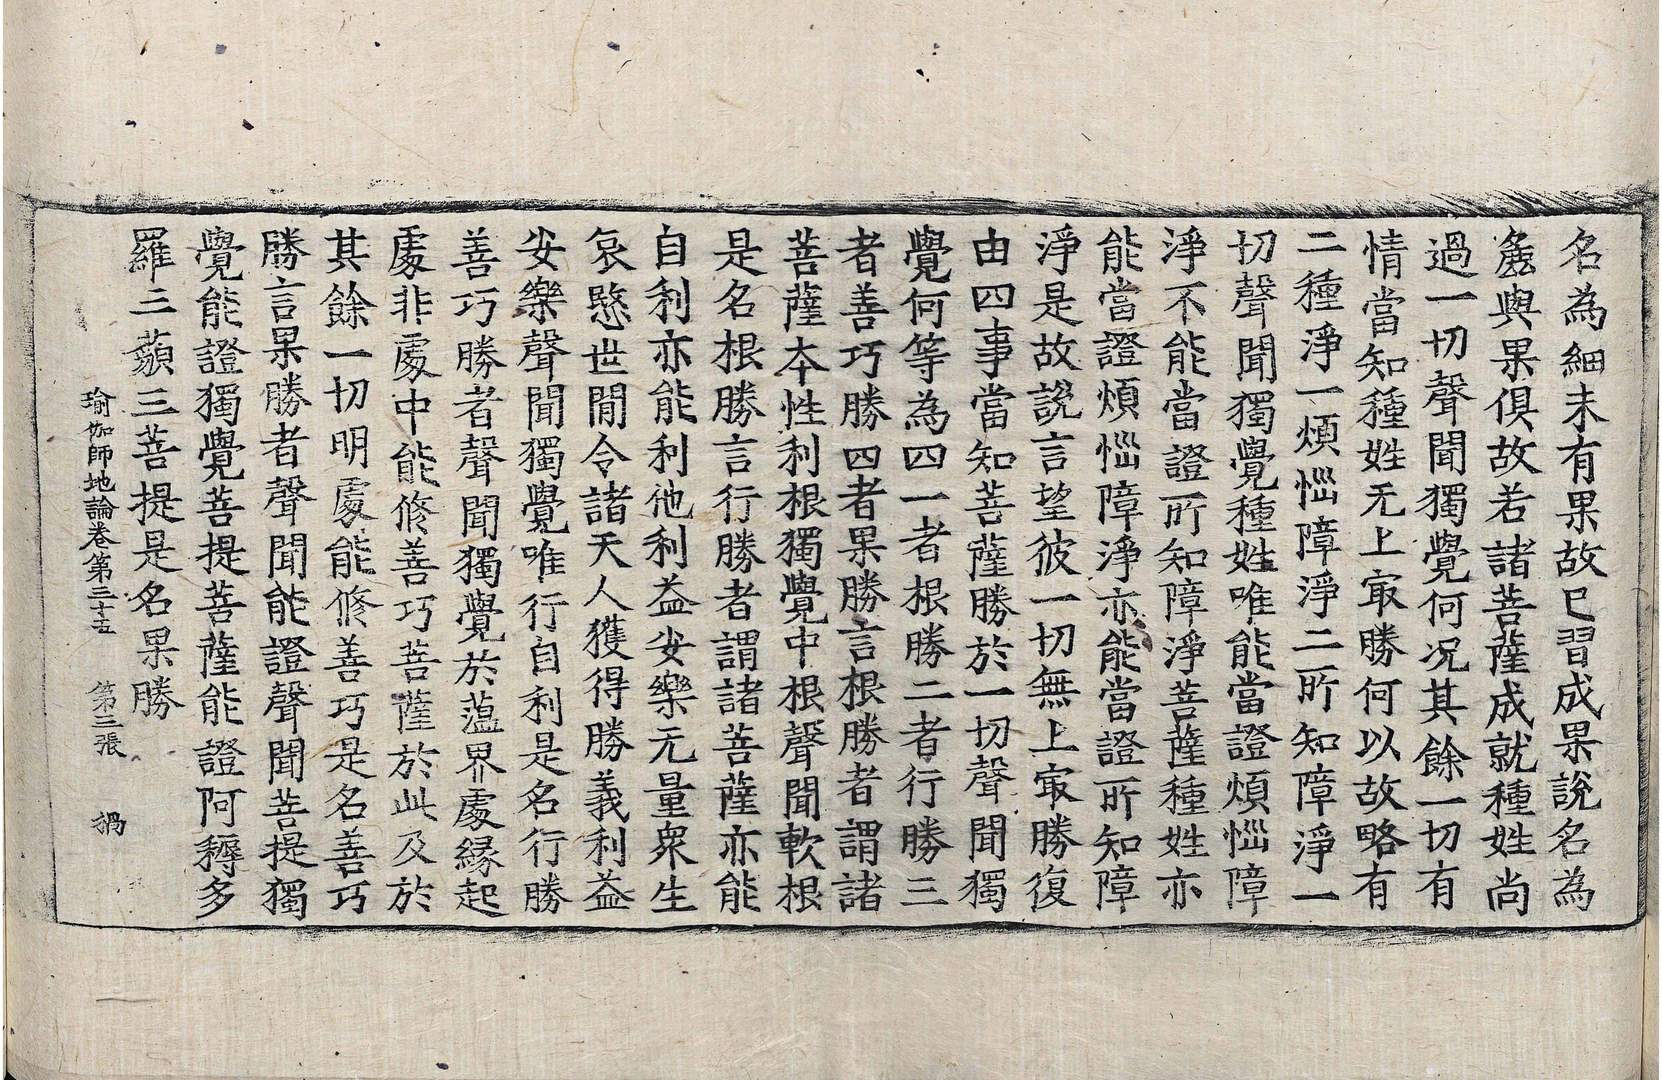 名為細未有果故已習成果說名為
麁與果俱故若諸菩薩成就種姓尚
過一切聲聞獨覺何况其餘一切有
情當知種姓无上冣勝何以故略有
二種淨一煩惱障淨二所知障淨一
切聲聞獨覺種姓唯能當證煩惱障
淨不能當證所知障淨菩薩種姓亦
能當證煩惱障淨亦能當證所知障
淨是故說言望彼一切無上冣勝復
由四事當知菩薩勝於一切聲聞獨
覺何等為四一者根勝二者行勝三
者善巧勝四者果勝言根勝者謂諸
菩薩本性利根獨覺中根聲聞軟根
是名根勝言行勝者謂諸菩薩亦能
自利亦能利他利益安樂无量衆生
哀愍世間令諸天人獲得勝義利益
安樂聲聞獨覺唯行自利是名行勝
善巧勝者聲聞獨覺於蕰界處緣起
處非處中能修善巧菩薩於此及於
其餘一切明處能修善巧是名善巧
勝言果勝者聲聞能證聲聞菩提獨
覺能證獨覺菩提菩薩能證阿耨多
羅三藐三菩提是名果勝
瑜伽師地論卷第三十五 第三張 禍